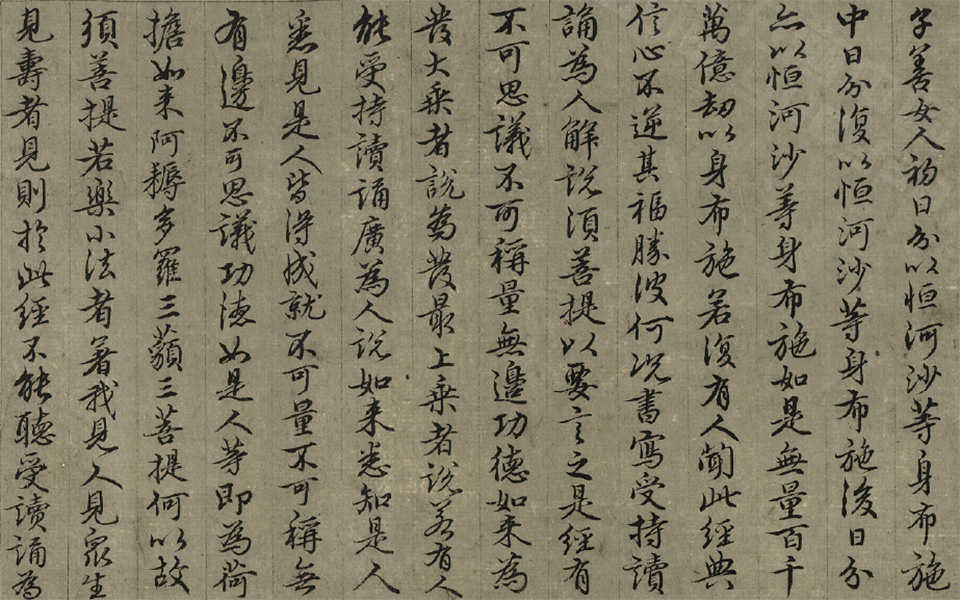 子善女人初日分以恒河沙等身布施
中日分復以恒河沙等身布施後日分
亦以恒河沙等身布施如是無量百千
萬億劫以身布施若復有人聞此經典
信心不逆其福勝彼何況書寫受持讀
誦為人解說須菩提以要言之是經有
不可思議不可稱量無邊功德如来為
發大乗者說為發最上乗者說若有人
能受持讀誦廣為人說如来悉知是人
悉見是人皆得成就不可量不可稱無
有邊不可思議功德如是人等即為荷
擔如来阿耨多羅三藐三菩提何以故
須菩提若樂小法者著我見人見衆生
見壽者見則於此經不能聽受讀誦為